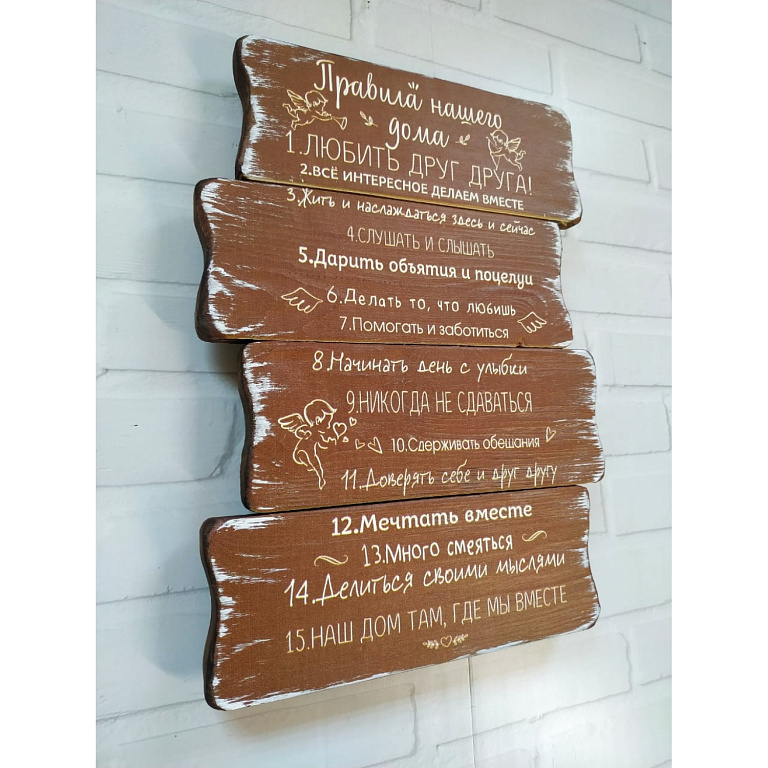 Правила нашего
дома
1.ЛЮБИТЬ ДРУГ ДРУГА!
2.ВСЁ ИНТЕРЕСНОЕ ДЕЛАЕМ ВМЕСТЕ
3.Жить и наслаждаться здесь и сейчас
4.СЛУШАТЬ И СЛЫШАТЬ
5.Дарить объятия и поцелуи
6.Делать то, что любишь
7.Помогать и заботиться
8.Начинать день с улыбки
9.НИКОГДА НЕ СДАВАТЬСЯ
10.Сдерживать обещания
11.Доверять себе и друг другу
12.Мечтать вместе
13.Много смеяться
14.Делиться своими мыслями
15.НАШ ДОМ ТАМ, ГДЕ МЫ ВМЕСТЕ